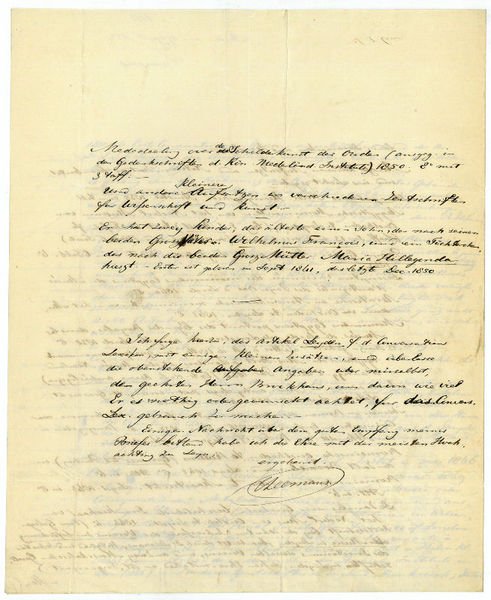 Mededeeling over de Schilderkunst der Ouden (ausgeg. in
den Gedenkschriften d. Kön. Nederländ. Instituts) 1850. 8° mit
3 taff. —
kleinere
und andere Aufsätze in verschiedenen Zeitschriften
für Wissenschaft und Kunst. —
Er hat zwey Kinder, der älteste einen Sohn, der nach seinen
beiden Grosz Vätern Wilhelmus François, und ein Töchterchen,
das nach die beiden Grosz Mütter Maria Hillegonda
heiszt — Erster ist geboren in Sept 1848, das letzte Dec. 1850
Ich füge hierin, des Artikel Leyden f. d. Conversations
Lexikon, mit einige kleinen Zusätzen, und überlasse
die obenstehende Angaben über mirselbst,
dem geehrten Herrn Brockhaus, um davon wie viel
Er es nöthig oder gewünscht achtet, für das Convers.
Lex. gebrauch zu machen. —
Einigen Nachricht über den guten Empfang meines
Briefes bittend habe ich die Ehre mit der meisten Hoch
achtung zu seyn
ergebenst
Leemans